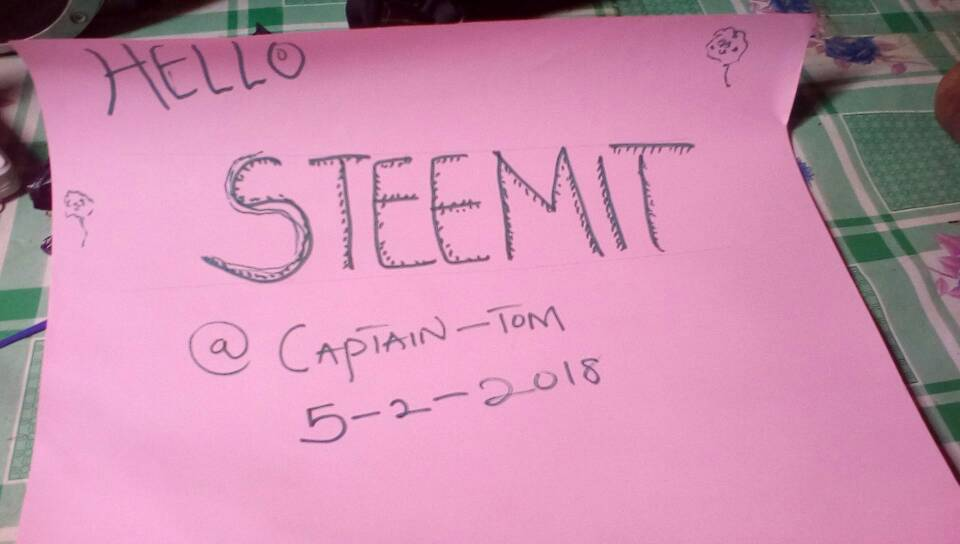 HELLO
STEEMIT
@ CAPTAIN-TOM
5-2-2018